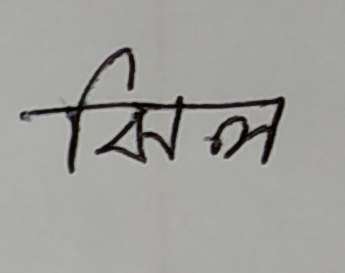 মিল